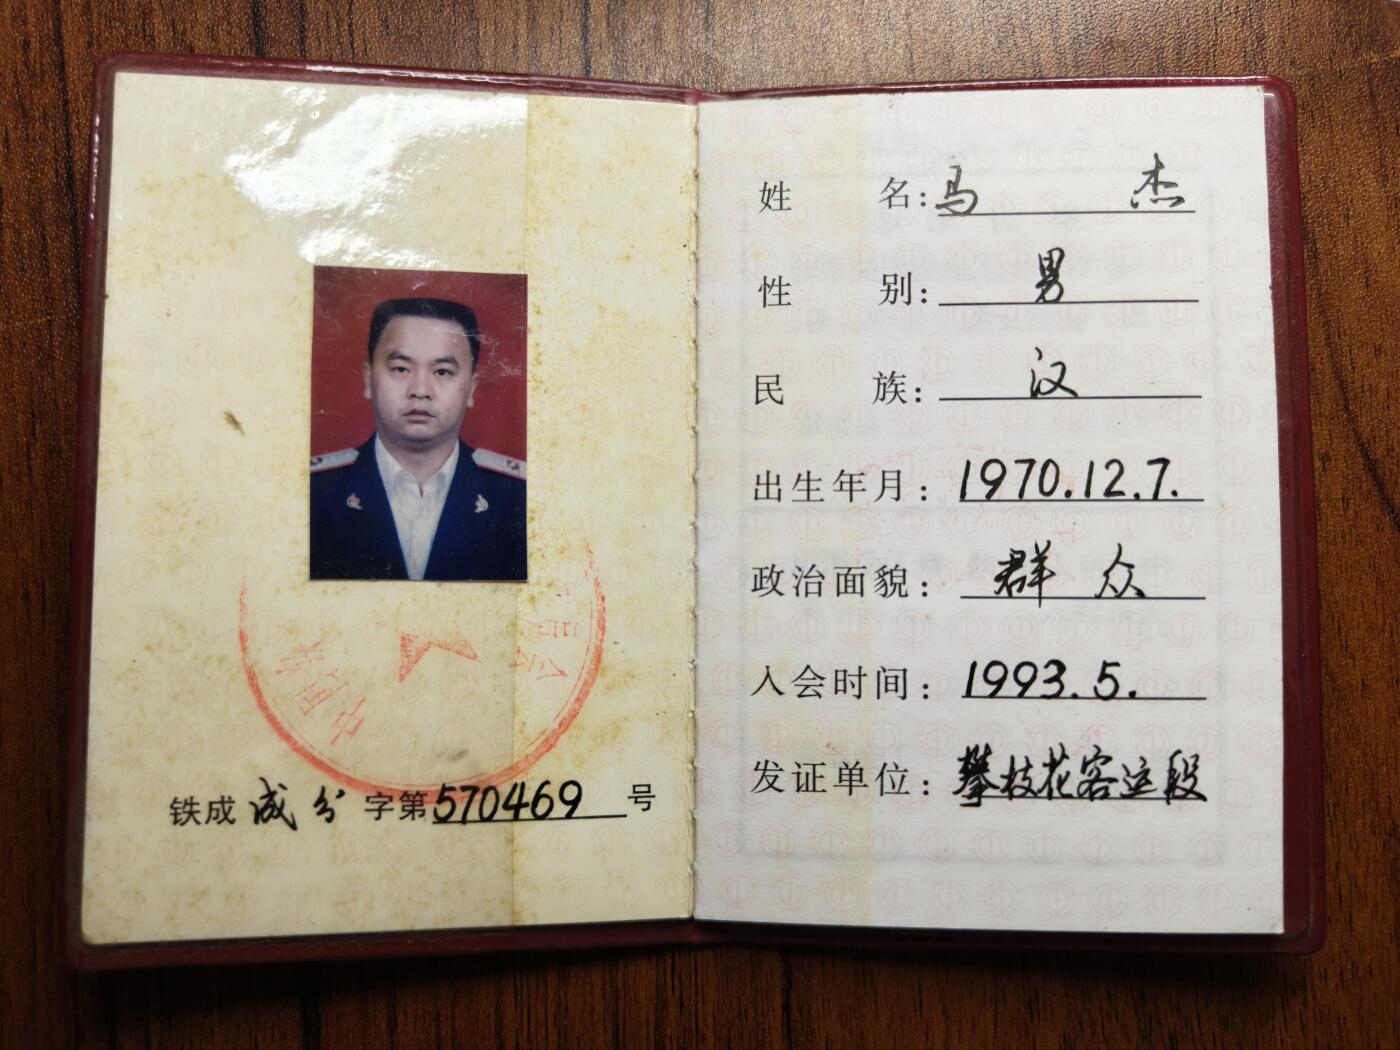 中国铁
员会
铁成 成分 字第570469号
姓名：马杰
性别：男
民族：汉
出生年月：1970.12.7.
政治面貌：群众
入会时间：1993.5.
发证单位：攀枝花客运段